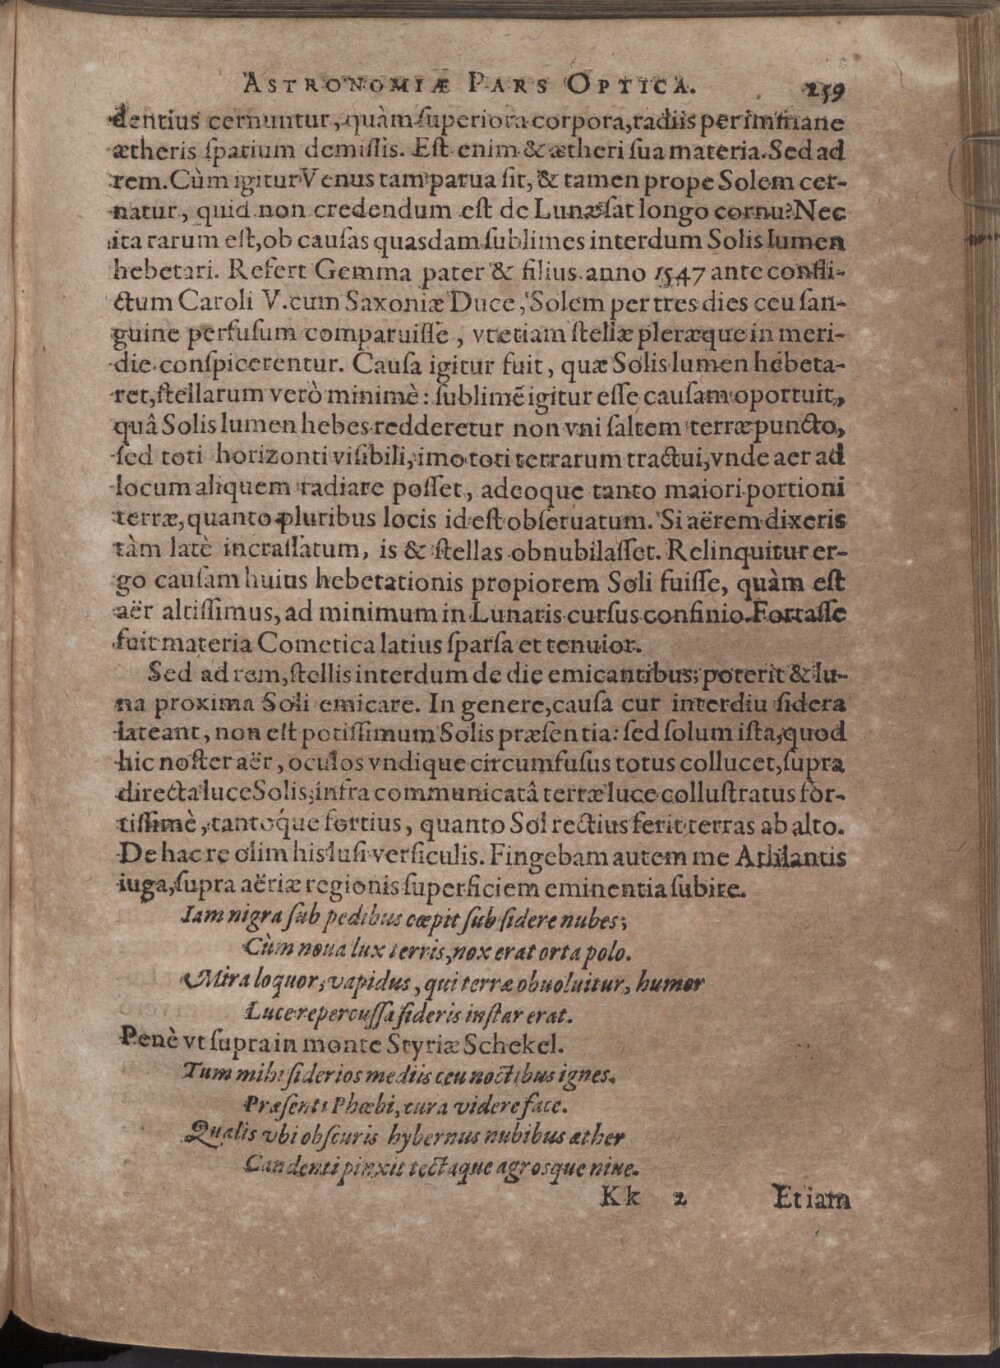 ASTRONOMIÆ PARS OPTICA. 259
dentius cernuntur, quàm superiora corpora, radiis per immane
ætheris spatium demissis. Est enim & ætheri sua materia. Sed ad
rem. Cùm igitur Venus tam parua sit, & tamen prope Solem cer-
natur, quid non credendum est de Lunæ sat longo cornu? Nec
ita rarum est, ob causas quasdam sublimes interdum Solis lumen
hebetari. Refert Gemma pater & filius anno 1547 ante confli-
ctum Caroli V. cum Saxoniæ Duce, Solem per tres dies ceu san-
guine perfusum comparuisse, vt etiam stellæ pleræque in meri-
die conspicerentur. Causa igitur fuit, quæ Solis lumen hebeta-
ret, stellarum verò minimè: sublimẽ igitur esse causam oportuit,
quâ Solis lumen hebes redderetur non vni saltem terræ puncto,
sed toti horizonti visibili, imo toti terrarum tractui, vnde aer ad
locum aliquem radiare posset, adeoque tanto maiori portioni
terræ, quanto pluribus locis id est obseruatum. Si aërem dixeris
tàm latè incrassatum, is & stellas obnubilasset. Relinquitur er-
go causam huius hebetationis propiorem Soli fuisse, quàm est
aër altissimus, ad minimum in Lunaris cursus confinio. Fortasse
fuit materia Cometica latius sparsa et tenuior.
Sed ad rem, stellis interdum de die emicantibus; poterit & lu-
na proxima Soli emicare. In genere, causa cur interdiu sidera
lateant, non est potissimum Solis præsentia: sed solum ista, quod
hic noster aër, oculos vndique circumfusus totus collucet, supra
directa luce Solis, infra communicatâ terræ luce collustratus for-
tissimè, tantoq́ue fortius, quanto Sol rectius ferit terras ab alto.
De hac re olim his lusi versiculis. Fingebam autem me Athlantis
iuga, supra aëriæ regionis superficiem eminentia subire.
Iam nigra sub pedibus cœpit sub sidere nubes;
Cùm noua lux terris, nox erat orta polo.
Mira loquor; vapidus, qui terræ obuoluitur, humor
Luce repercussa sideris instar erat.
Penè vt supra in monte Styriæ Schekel.
Tum mihi siderios mediis ceu noctibus ignes,
Præsenti Phœbi, cura videre face.
Qualis vbi obscuris hybernus nubibus æther
Candenti pinxit tectaque agrosque niue.
Kk 2 Etiam